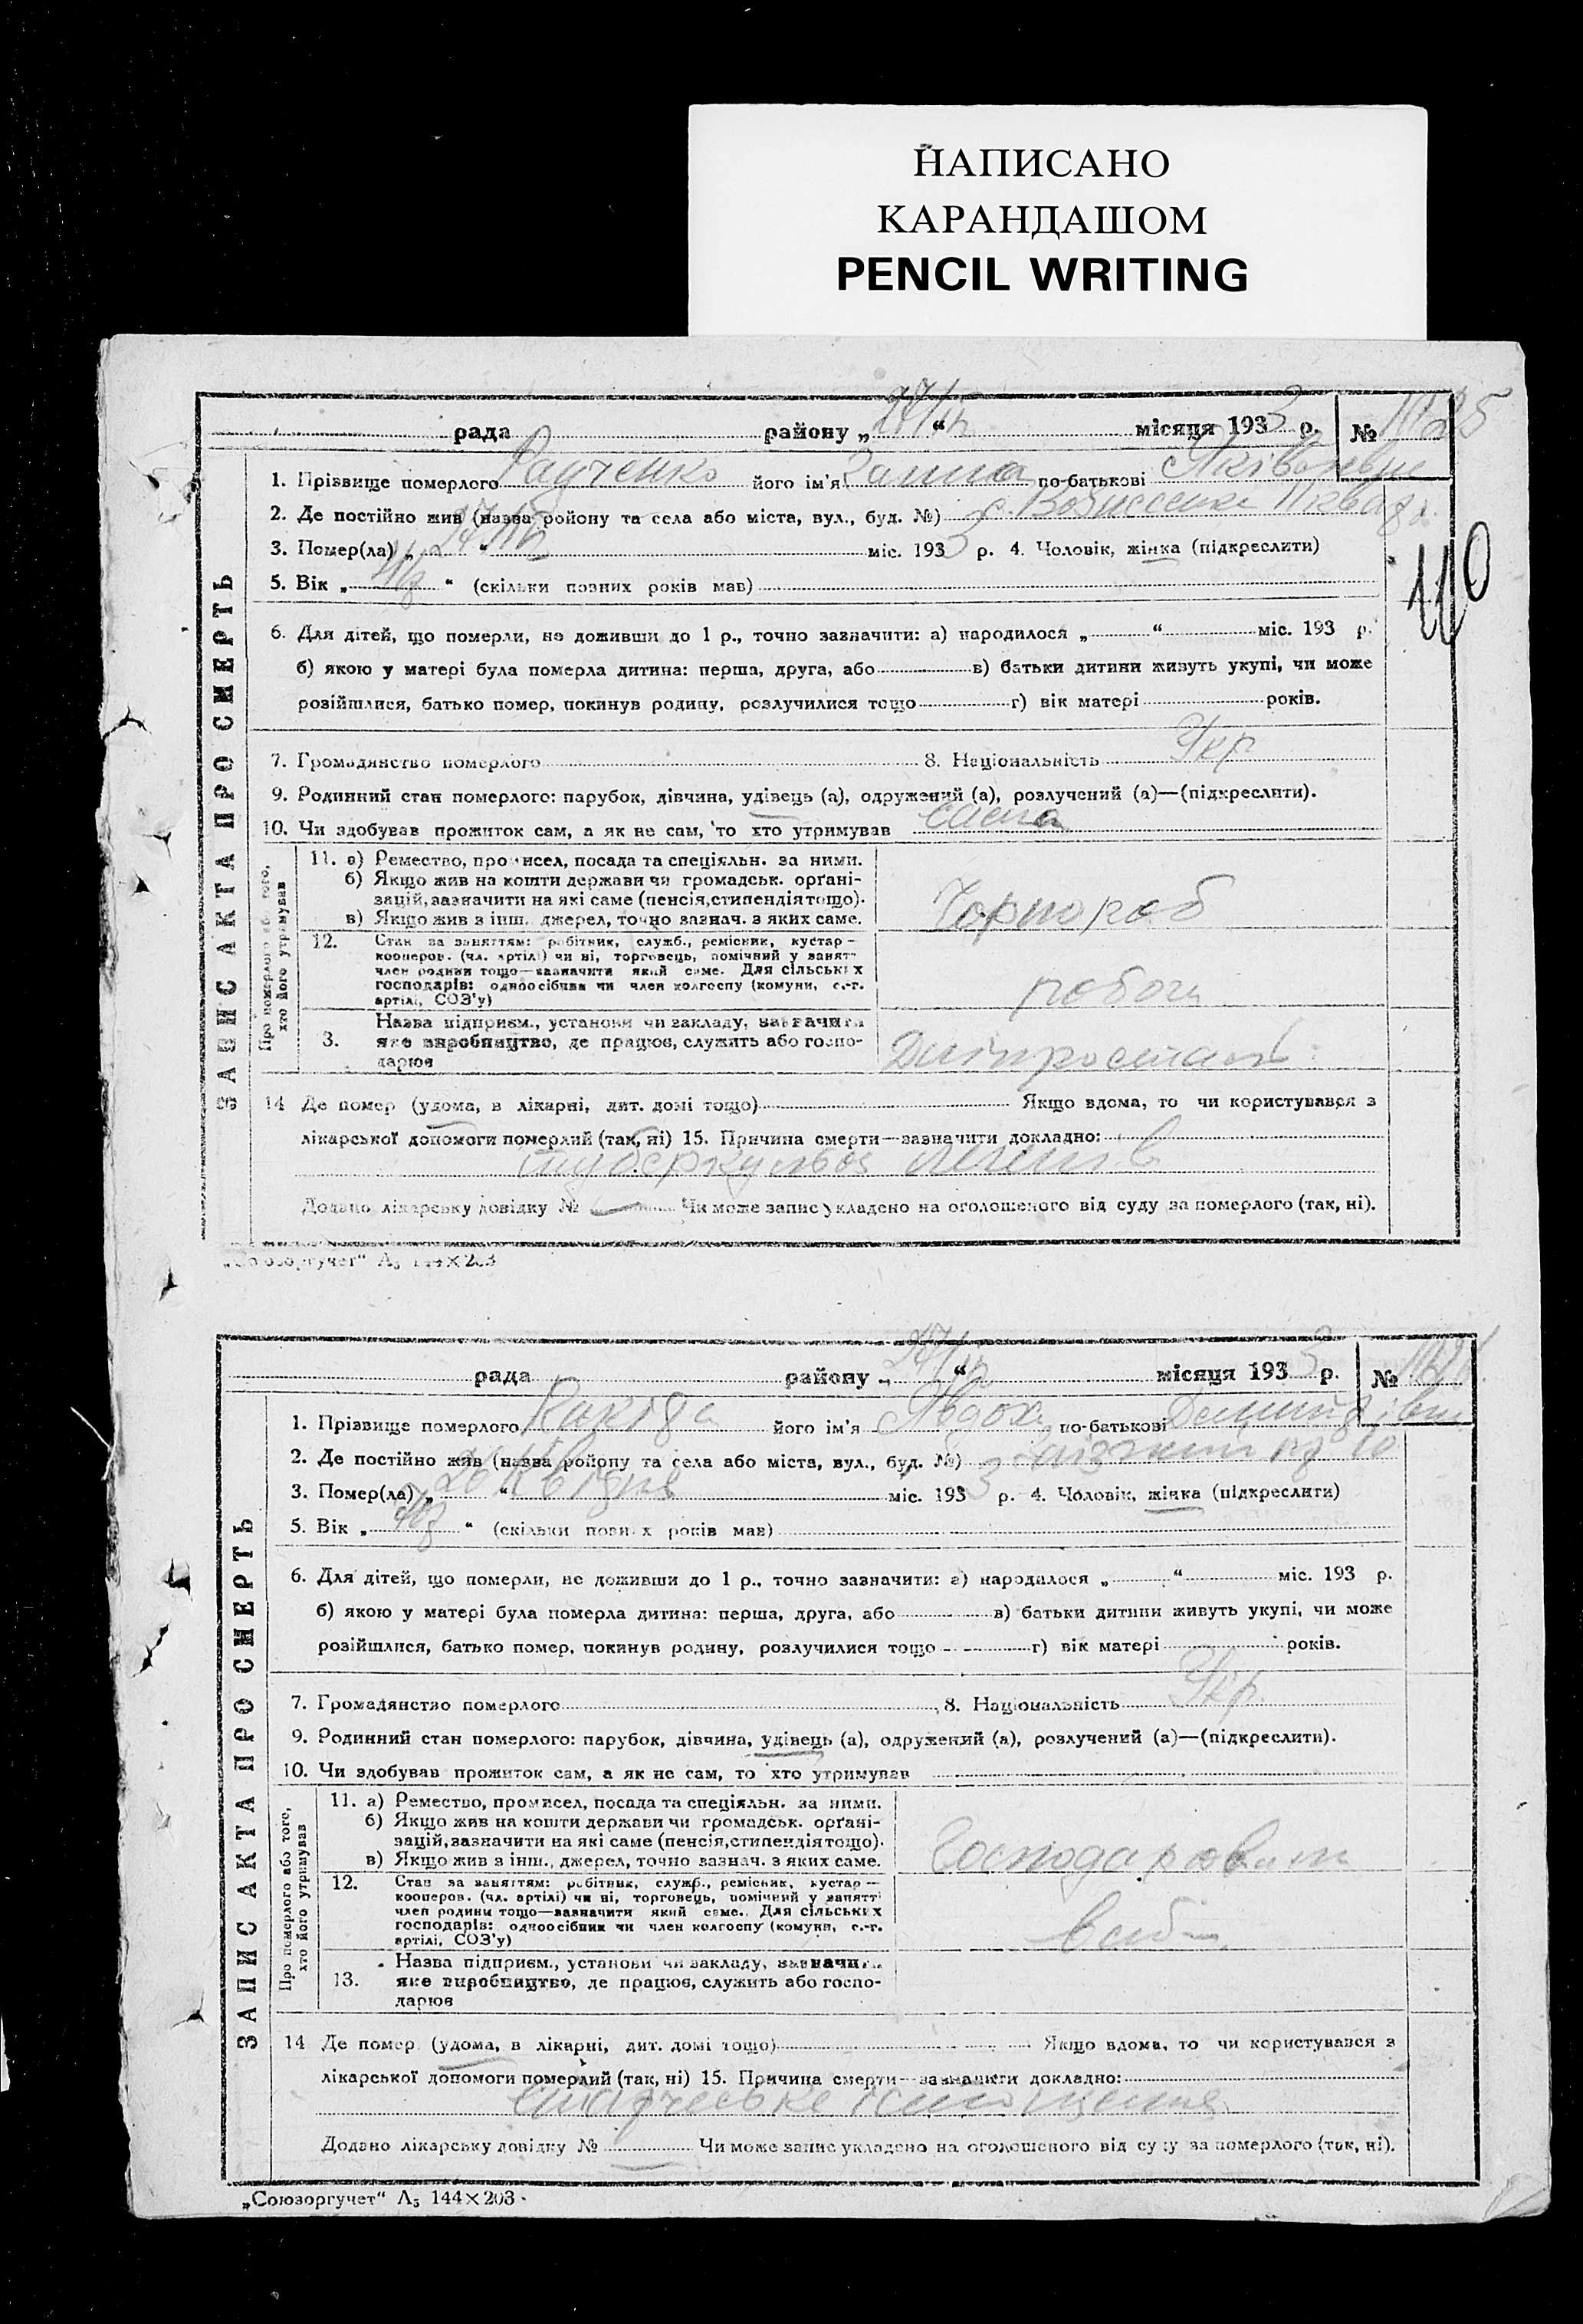 НАПИСАНО
КАРАНДАШОМ
PENCIL WRITING
рада району „27/IV“ місяця 1933 р. № 1125
1. Прізвище померлого Радченко його ім'я Ганна по-батькові Яківлевна
2. Де постійно жив (назва ройону та села або міста, вул., буд. №) с. Вознесенка
3. Помер(ла) „27/IV“ міс. 1933 р. 4. Чоловік, жінка (підкреслити)
110
5. Вік „ “ (скільки повних років мав)
6. Для дітей, що померли, не доживши до 1 р., точно зазначити: а) народилося „ “ міс. 193 р.
б) якою у матері була померла дитина: перша, друга, або в) батьки дитини живуть укупі, чи може
розійшлися, батько помер, покинув родину, розлучилися тощо г) вік матері років.
7. Громадянство померлого 8. Національність Укр
9. Родинний стан померлого: парубок, дівчина, удівець (а), одружений (а), розлучений (а)—(підкреслити).
10. Чи здобував прожиток сам, а як не сам, то хто утримував сама
ЗАПИС АКТА ПРО СМЕРТЬ
Про померлого або того,
хто його утримував
11. а) Ремество, промисел, посада та спеціяльн. за ними.
б) Якщо жив на кошти держави чи громадськ. органі-
зацій, зазначити на які саме (пенсія, стипендія тощо).
в) Якщо жив з інш. джерел, точно зазнач. з яких саме.
Чорнороб
12. Стан за заняттям: робітник, служб., ремісник, кустар—
кооперов. (чл. артілі) чи ні, торговець, помічний у занятт
член родини тощо—зазначити який саме. Для сільських
господарів: одноосібник чи член колгоспу (комуни, с.-г.
артілі, СОЗ'у)
робоч
3. Назва підприєм., установи чи закладу, зазначити
яке виробництво, де працює, служить або госпо-
дарює
Дніпросталь
14 Де помер (удома, в лікарні, дит. домі тощо) Якщо вдома, то чи користувався з
лікарської допомоги померлий (так, ні) 15. Причина смерти—зазначити докладно:
туберкульоз легенів
Додано лікарську довідку № Чи може запис укладено на оголошеного від суду за померлого (так, ні).
„Союзоргучет“ А₅ 144×203
рада району „27/IV“ місяця 1933 р. № 1126
1. Прізвище померлого його ім'я Явдоха по-батькові Демидівна
2. Де постійно жив (назва ройону та села або міста, вул., буд. №)
3. Помер(ла) „26“ квітня міс. 1933 р. 4. Чоловік, жінка (підкреслити)
5. Вік „ “ (скільки повних років мав)
6. Для дітей, що померли, не доживши до 1 р., точно зазначити: а) народилося „ “ міс. 193 р.
б) якою у матері була померла дитина: перша, друга, або в) батьки дитини живуть укупі, чи може
розійшлися, батько помер, покинув родину, розлучилися тощо г) вік матері років.
7. Громадянство померлого 8. Національність Укр.
9. Родинний стан померлого: парубок, дівчина, удівець (а), одружений (а), розлучений (а)—(підкреслити).
10. Чи здобував прожиток сам, а як не сам, то хто утримував
ЗАПИС АКТА ПРО СМЕРТЬ
Про померлого або того,
хто його утримував
11. а) Ремество, промисел, посада та спеціяльн. за ними.
б) Якщо жив на кошти держави чи громадськ. органі-
зацій, зазначити на які саме (пенсія, стипендія тощо).
в) Якщо жив з інш., джерел, точно зазнач. з яких саме.
12. Стан за заняттям: робітник, служб., ремісник, кустар—
кооперов. (чл. артілі) чи ні, торговець, помічний у занятті
член родини тощо—зазначити який саме. Для сільських
господарів: одноосібник чи член колгоспу (комуни, с.-г.
артілі, СОЗ'у)
13. Назва підприєм., установи чи закладу, зазначити
яке виробництво, де працює, служить або госпо-
дарює
14 Де помер (удома, в лікарні, дит. домі тощо) Якщо вдома, то чи користувався з
лікарської допомоги померлий (так, ні) 15. Причина смерти—зазначити докладно:
старческе істощение
Додано лікарську довідку № Чи може запис укладено на оголошеного від суду за померлого (так, ні).
„Союзоргучет“ А₅ 144×203